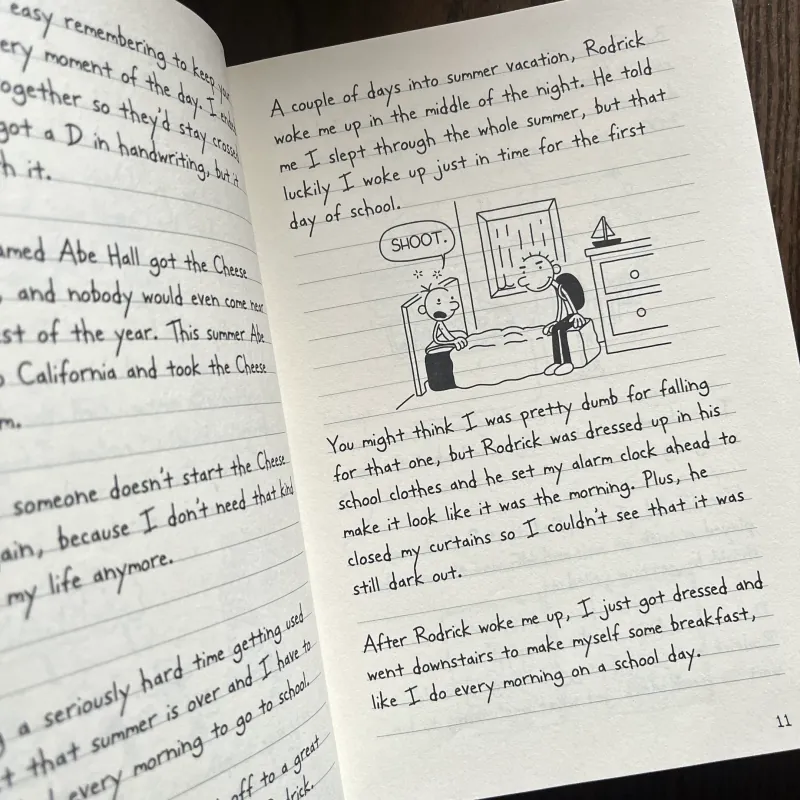 easy remembering to keep
ery moment of the day. I
ogether so they'd stay crossed
got a D in handwriting, but it
h it.
amed Abe Hall got the Cheese
, and nobody would even come near
st of the year. This summer Abe
o California and took the Cheese
m.
someone doesn't start the Cheese
ain, because I don't need that kind
my life anymore.
a seriously hard time getting used
t that summer is over and I have to
every morning to go to school.
off to a great
drick.
A couple of days into summer vacation, Rodrick
woke me up in the middle of the night. He told
me I slept through the whole summer, but that
luckily I woke up just in time for the first
day of school.
SHOOT.
You might think I was pretty dumb for falling
for that one, but Rodrick was dressed up in his
school clothes and he set my alarm clock ahead to
make it look like it was the morning. Plus, he
closed my curtains so I couldn't see that it was
still dark out.
After Rodrick woke me up, I just got dressed and
went downstairs to make myself some breakfast,
like I do every morning on a school day.
11